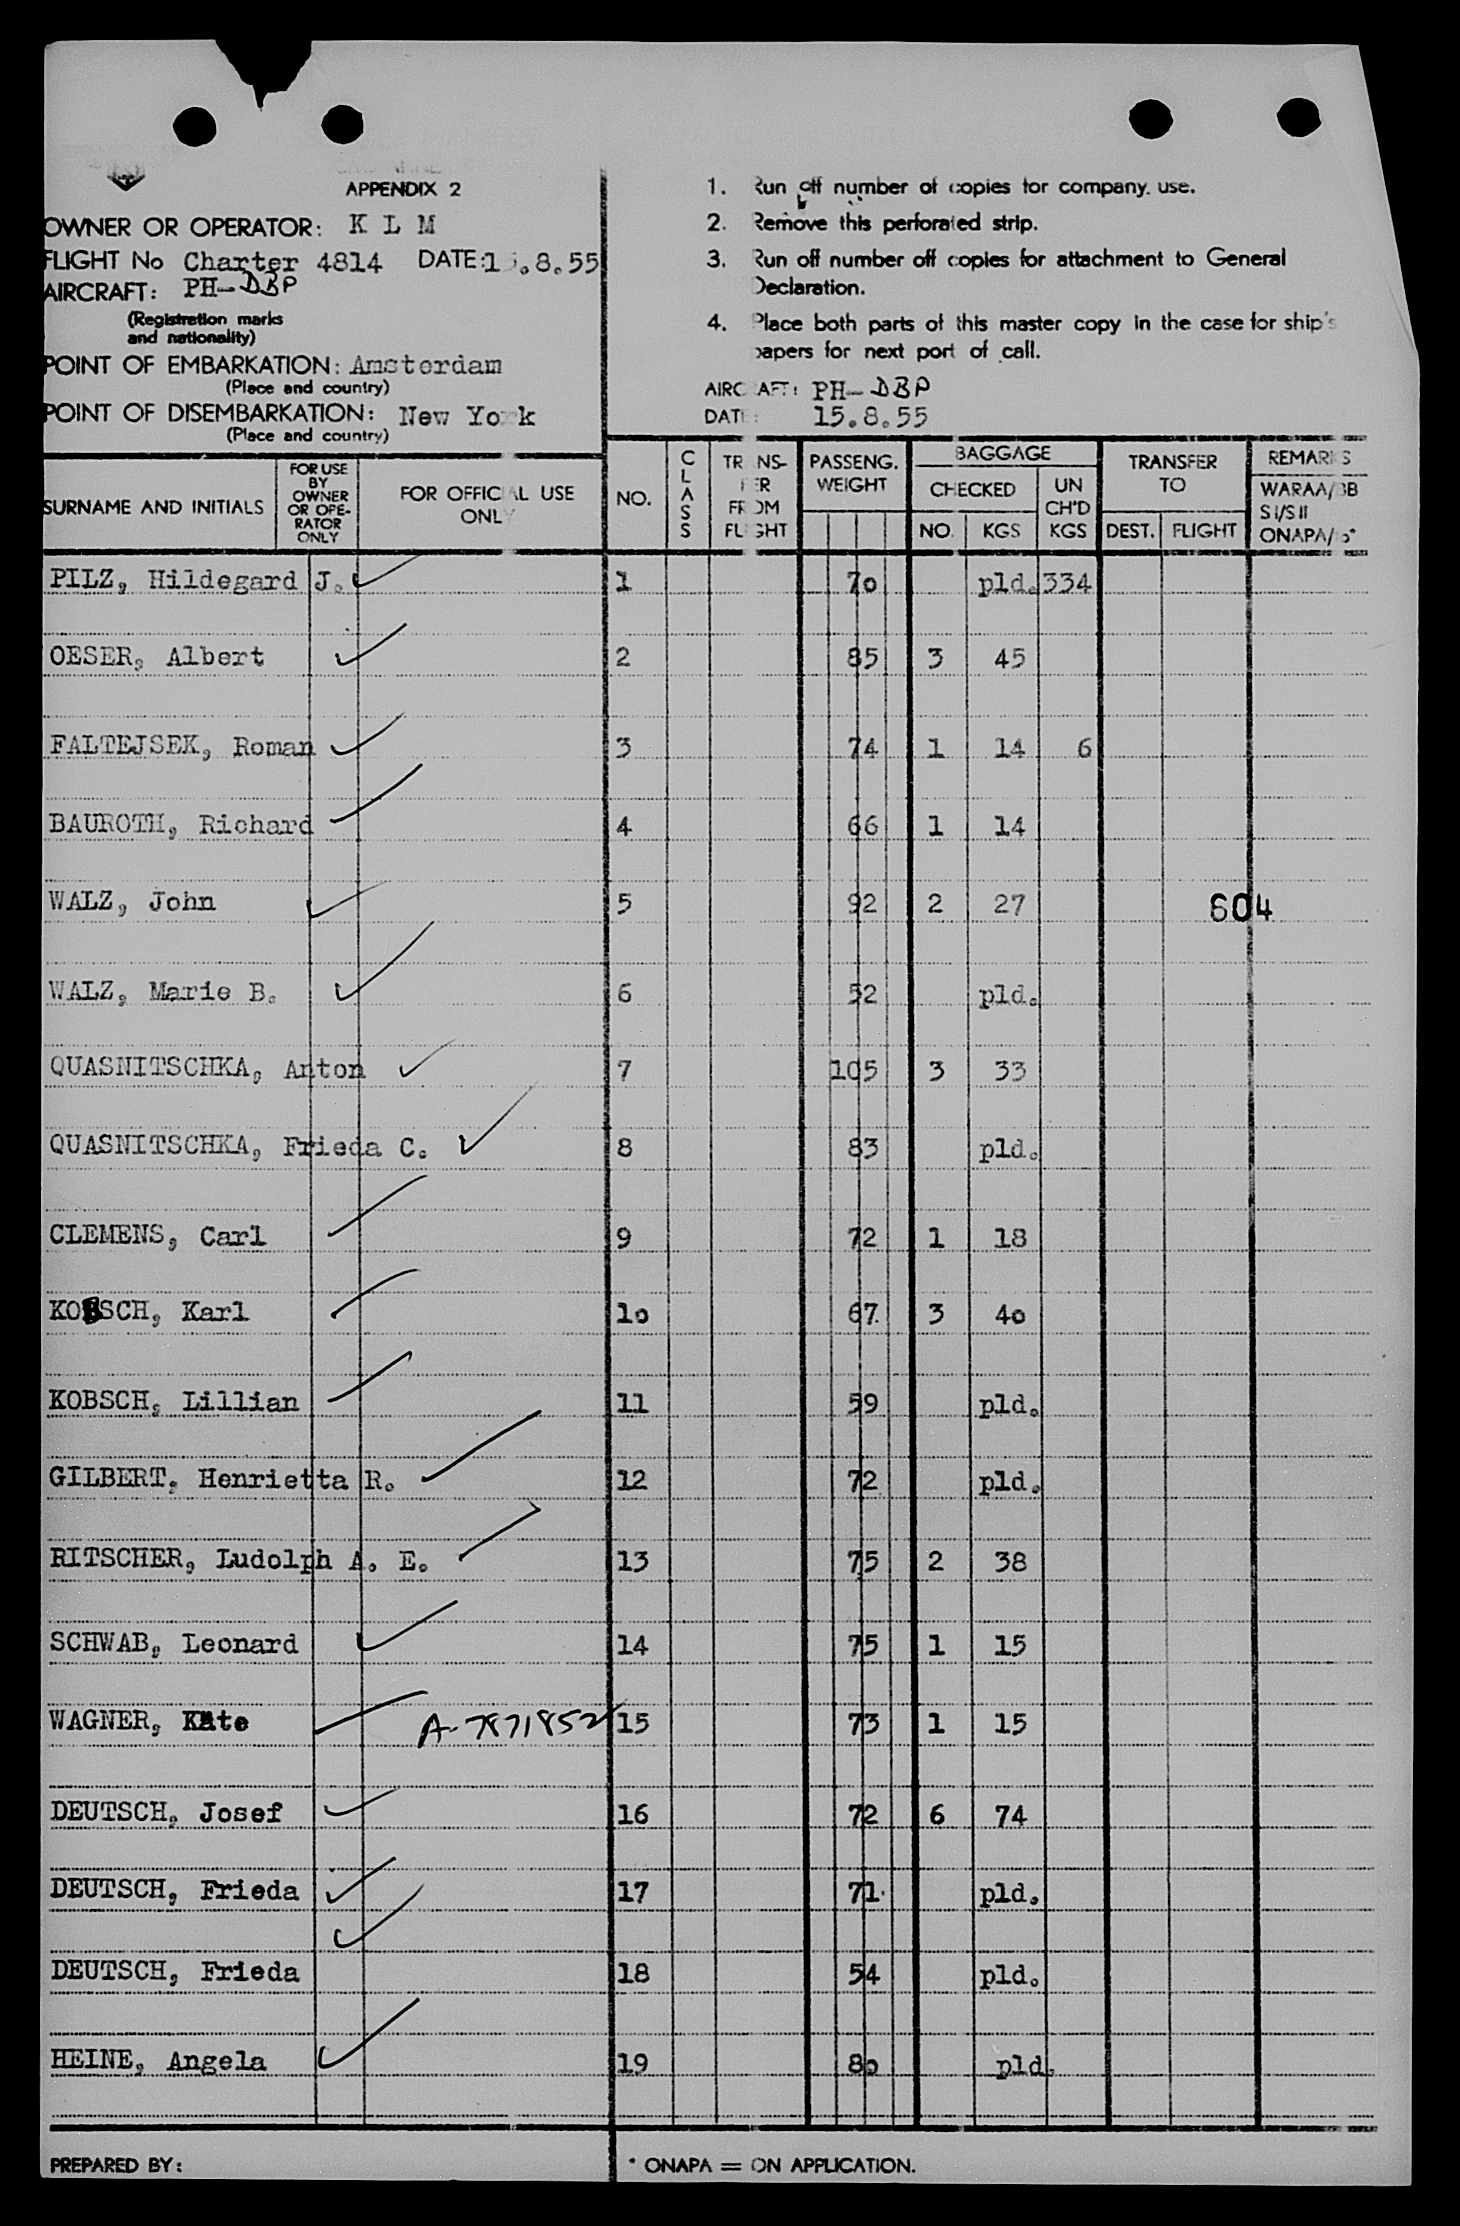 APPENDIX 2
OWNER OR OPERATOR: K L M
FLIGHT No Charter 4814 DATE:15.8.55
AIRCRAFT: PH-DBP
(Registration marks
and nationality)
POINT OF EMBARKATION: Amsterdam
(Place and country)
POINT OF DISEMBARKATION: New York
(Place and country)
1. Run off number of copies for company use.
2. Remove this perforated strip.
3. Run off number off copies for attachment to General
Declaration.
4. Place both parts of this master copy in the case for ship's
papers for next port of call.
AIRCRAFT: PH-DBP
DATE: 15.8.55
SURNAME AND INITIALS
FOR USE
BY
OWNER
OR OPE-
RATOR
ONLY
FOR OFFICIAL USE
ONLY
NO.
CLASS
TRANS-
FER
FROM
FLIGHT
PASSENG.
WEIGHT
BAGGAGE
CHECKED
NO. KGS
UN
CH'D
KGS
TRANSFER
TO
DEST. FLIGHT
REMARKS
WARAA/BB
SI/SII
ONAPA/ *
PILZ, Hildegard J. 1 70 pld. 334
OESER, Albert 2 85 3 45
FALTEJSEK, Roman 3 74 1 14 6
BAUROTH, Richard 4 66 1 14
WALZ, John 5 92 2 27 604
WALZ, Marie B. 6 52 pld.
QUASNITSCHKA, Anton 7 105 3 33
QUASNITSCHKA, Frieda C. 8 83 pld.
CLEMENS, Carl 9 72 1 18
KOBSCH, Karl 10 67 3 40
KOBSCH, Lillian 11 59 pld.
GILBERT, Henrietta R. 12 72 pld.
RITSCHER, Ludolph A. E. 13 75 2 38
SCHWAB, Leonard 14 75 1 15
WAGNER, Kate A-7871852 15 73 1 15
DEUTSCH, Josef 16 72 6 74
DEUTSCH, Frieda 17 71 pld.
DEUTSCH, Frieda 18 54 pld.
HEINE, Angela 19 80 pld.
PREPARED BY:
* ONAPA = ON APPLICATION.